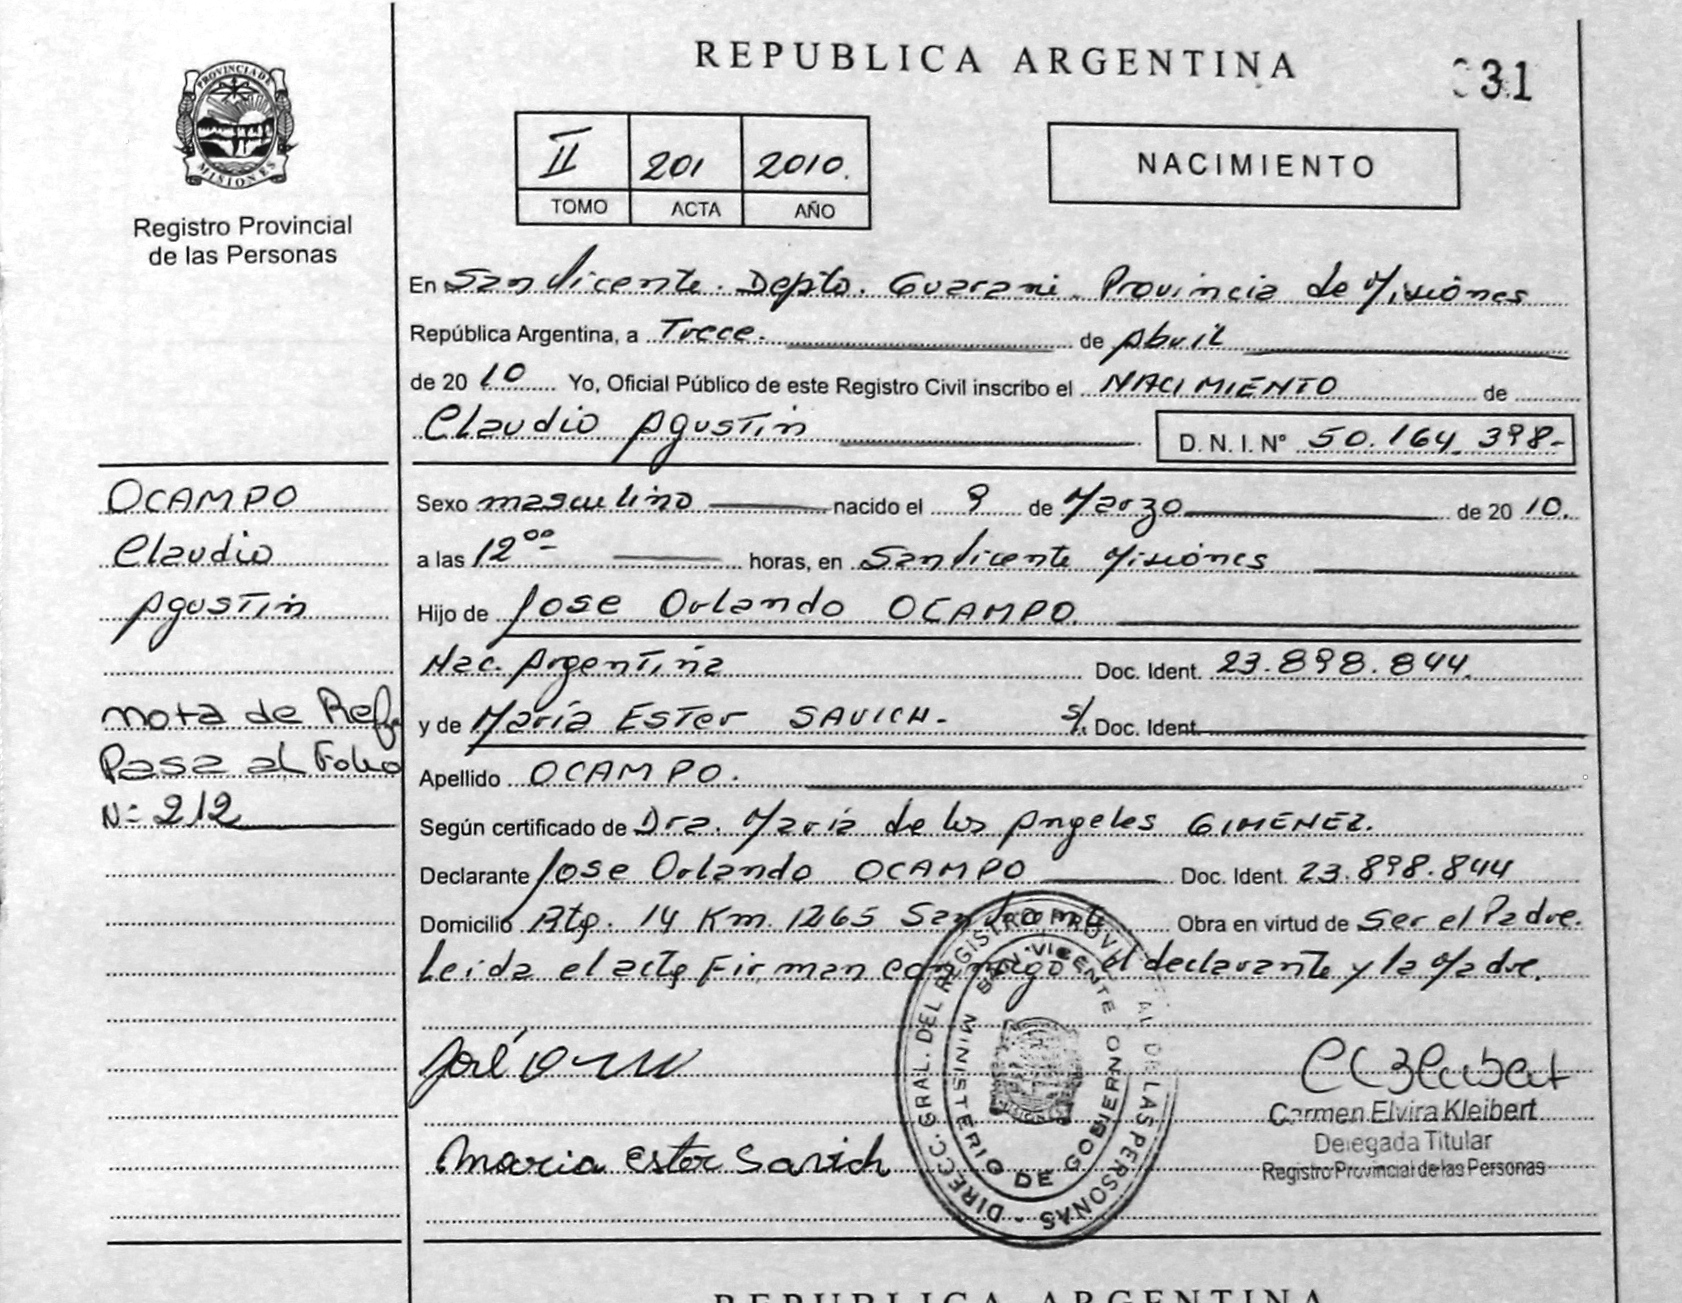 REPUBLICA ARGENTINA
031
PROVINCIA DE
MISIONES
Registro Provincial
de las Personas
II 201 2010.
TOMO ACTA AÑO
NACIMIENTO
En San Vicente. Depto. Guarani. Provincia de Misiones
República Argentina, a Trece. de Abril
de 2010 Yo, Oficial Público de este Registro Civil inscribo el NACIMIENTO de
Claudio Agustin D. N. I. N° 50.164.398-
OCAMPO
Claudio
Agustin
Nota de Ref.
Pasa al Folio
N= 212
Sexo masculino nacido el 9 de Marzo de 2010.
a las 12⁰⁰ horas, en San Vicente Misiones
Hijo de Jose Orlando OCAMPO.
Nac. Argentina Doc. Ident. 23.898.844.
y de Maria Ester SAVICH. s/. Doc. Ident.
Apellido OCAMPO.
Según certificado de Dra. Maria de los Angeles GIMENEZ.
Declarante Jose Orlando OCAMPO Doc. Ident. 23.898.844
Domicilio Rtg. 14 Km. 1265 San Vicente Obra en virtud de Ser el Padre.
Leida el acta Firman conmigo el declarante y la Madre.
José
Maria Ester Savich
DIRECC. GRAL. DEL REGISTRO PROVINCIAL DE LAS PERSONAS -
SAN VICENTE
MINISTERIO DE GOBIERNO
Carmen Elvira Kleibert
Delegada Titular
Registro Provincial de las Personas
REPUBLICA ARGENTINA